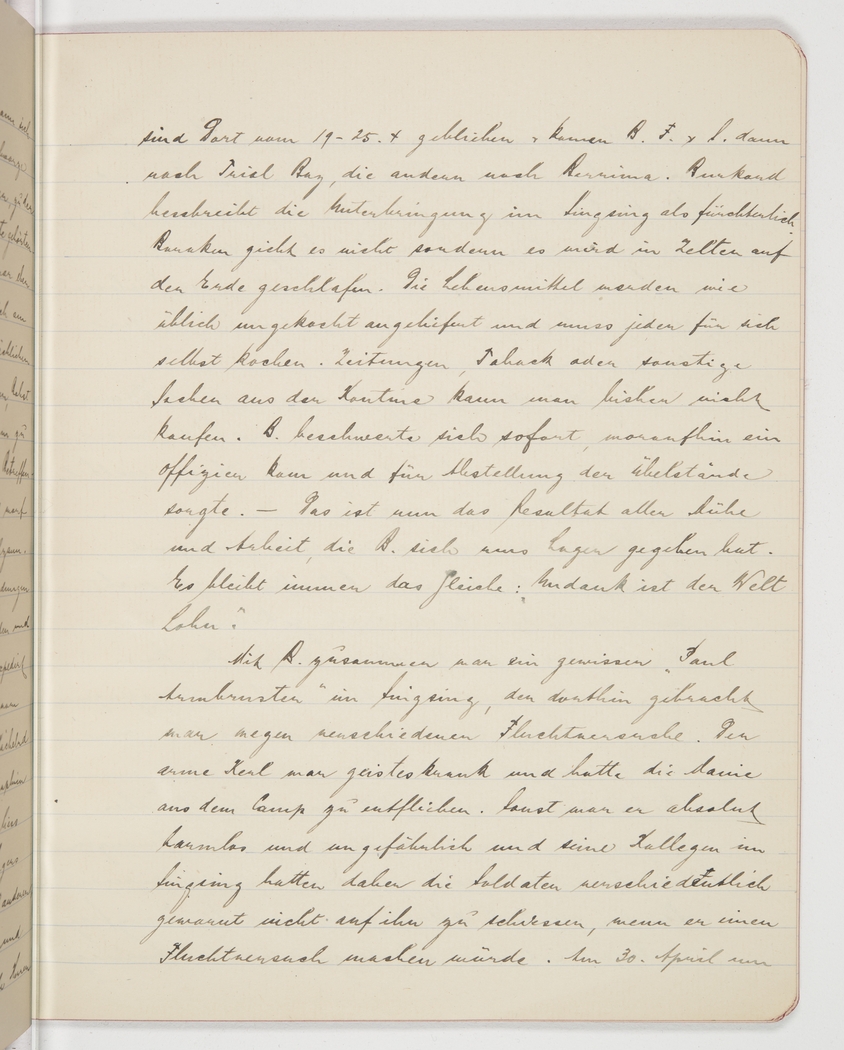 sind Dort vom 19-25. 4 geblieben & kamen B. F. & S. dann
nach Trial Bay, die andern nach Berrima. Burkard
beschreibt die Unterbringung im Singsing als fürchterlich.
Baraken giebt es nicht sondern es wird in Zelten auf
der Erde geschlafen. Die Lebensmittel werden wie
üblich ungekocht angeliefert und muss jeder für sich
selbst kochen. Zeitungen, Taback oder sonstige
Sachen aus der Kantine kann man bisher nicht
kaufen. B. beschwerte sich sofort, woraufhin ein
Offizier kam und für Abstellung der Übelstände
sorgte. — Das ist nun das Resultat aller Mühe
und Arbeit, die B. sich ums Lager gegeben hat.
Es bleibt immer das Gleiche: „Undank ist der Welt
Lohn".
Mit B. zusammen war ein gewisser „Paul
Armbruster" im Singsing, der dorthin gebracht
war wegen verschiedener Fluchtversuche. Der
arme Kerl war geisteskrank und hatte die Manie
aus dem Camp zu entfliehen. Sonst war er absolut
harmlos und ungefährlich und seine Kollegen im
Singsing hatten daher die Soldaten verschiedentlich
gewarnt nicht auf ihn zu schiessen, wenn er einen
Fluchtversuch machen würde. Am 30. April um